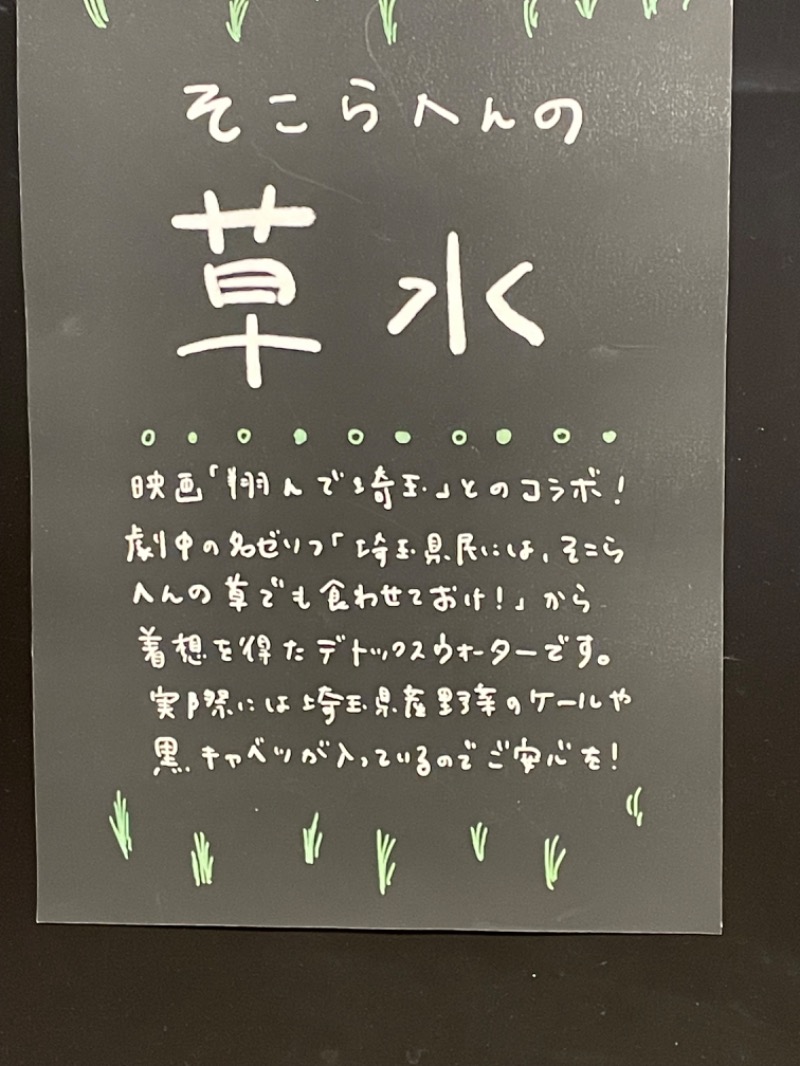 そこらへんの
草水
映画「翔んで埼玉」とのコラボ！
劇中の名ゼリフ「埼玉県民には、そこら
へんの草でも食わせておけ！」から
着想を得たデトックスウォーターです。
実際には埼玉県産野菜のケールや
黒キャベツが入っているのでご安心を！